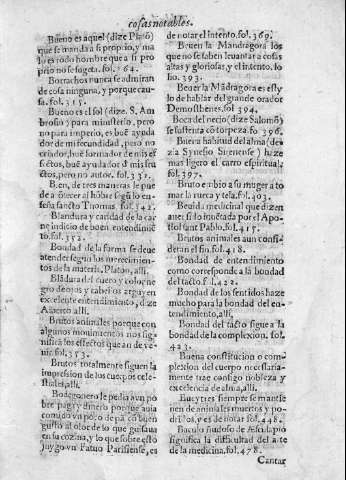 cosas notables.
Bueno es aquel (dize Platõ)
que se manda a si propio, y ma
lo es todo hombre que a si pro
prio no se sugeta. fol. 264.
Borrachos nunca se admiran
de cosa ninguna, y porque cau-
sa. fol. 315.
Bueno es el sol (dize S. Am
brosio) para ministerio, pero
no para imperio, es buẽ ayuda
dor de mi fecundidad, pero no
criador, buẽ formador de mis ef
fectos, buẽ ayudador d mis fru
ctos, pero no autor. fol. 331.
Bien, de tres maneras le pue
de acõtecer al hõbre segũ lo en-
seña sancto Thomas. fol. 342.
Blandura y caridad de la car
ne indicio de buen entendimiẽ
to. fol. 352.
Bondad de la forma se deue
atender segun los merecimien-
tos de la materia, Platon, alli.
Blãdura del cuero y color, ne
gro de ojos y cabellos arguyen
excelente entendimiento, dize
Auerto alli.
Brutos animales porque con
algunos mouimientos nos sig-
nifica los effectos que an de ve-
nir. fol. 353.
Brutos totalmente siguen la
impression de los cuerpos cele-
stiales, alli.
Bodegonero le pedia a vn po
bre paga y dinero porque auia
comido vn poco de pã cõ buen
gusto al olor de lo que guisaua
en su cozina, y lo que sobre esto
juzgo vn Fatuo Parisiense, es
de notar el intento. fol. 369.
Beuen la Mandragora los
que no se saben leuantar a cosas
altas y gloriosas, y el intento. fo
lio. 393.
Beuer la Mãdragora es esty
lo de hablar del grande orador
Demosthenes. fol. 394
Boca del necio (dize Salomõ)
se sustenta cõ torpeza. fo. 396.
Buena habitud del alma (de-
zia Synesio Sirenense) haze
mas ligero el carro espiritual.
fol. 397.
Bruto embio a su muger a to
mar la rueca y tela. fol. 403.
Beuidi municial que dizen
aue: si lo inquietada por el Apo-
stol sant Pablo. fol. 415.
Brutos animales aun consi-
deran el fin. fol. 418.
Bondad de entendimiento
como corresponde a la bondad
del tacto. fol. 422.
Bondad de los sentidos haze
mucho para la bondad del en-
tendimiento, alli.
Bondad del tacto sigue a la
bondad de la complexion. fol.
423.
Buena constitucion o com-
plexion del cuerpo necessaria-
mente trae consigo nobleza y
excelencia de alma, alli.
Bueytres siempre se mantie
nen de animales muertos y po-
dridos, y es de notar fol. 448.
Baculo ñudoso de Esculapio
significa la difficultad del arte
de la medicina. fol. 478.
Cantar